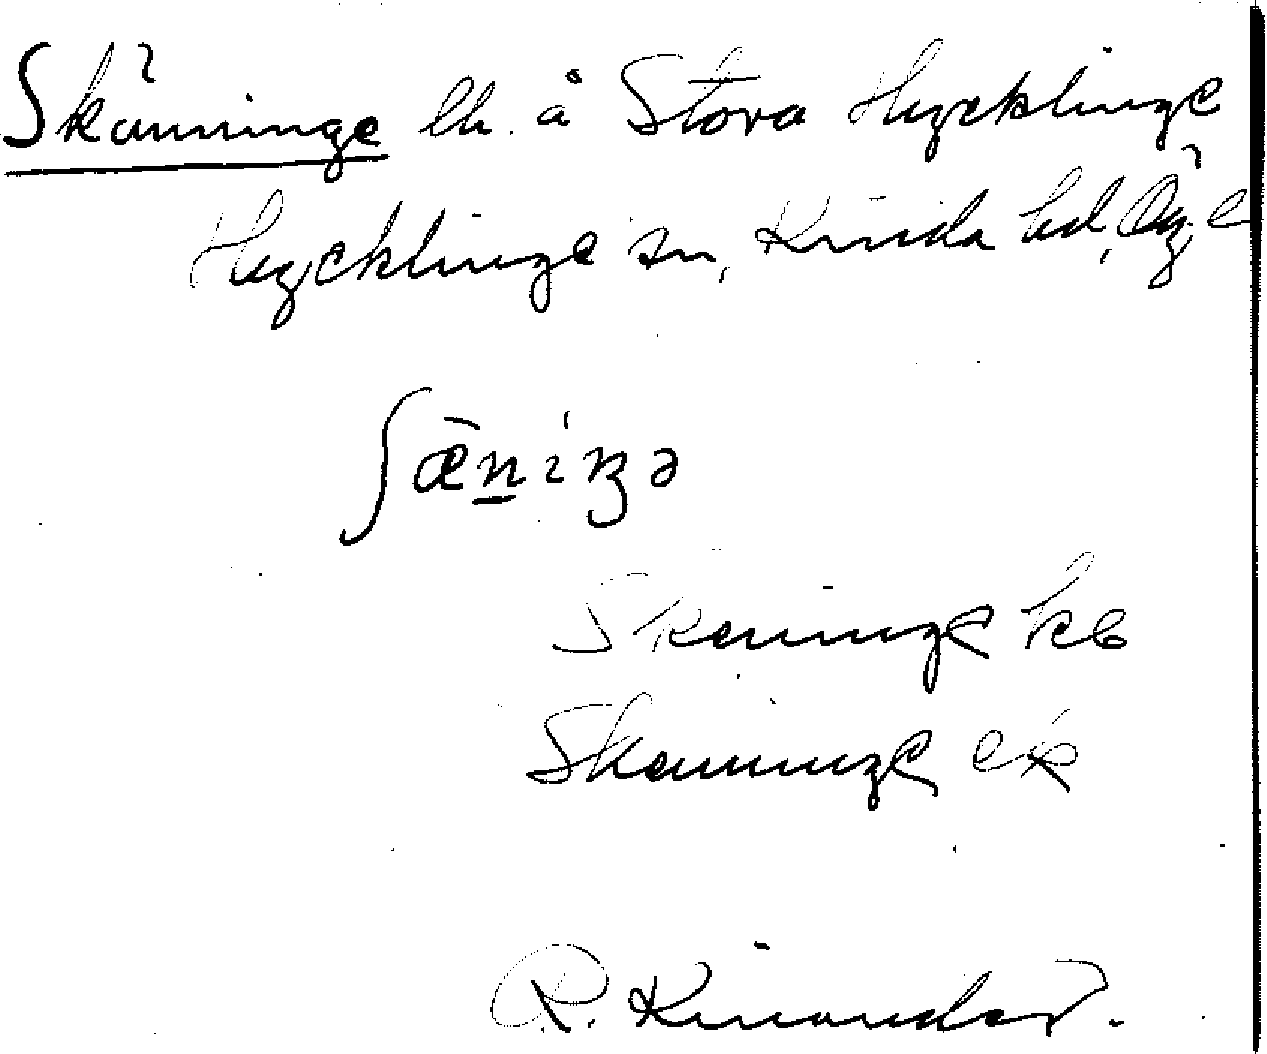 Skänninge lh. å Stora Hycklinge
Hycklinge sn, Kinda hd, Ög. l
ʃæ̀nìŋə
Skeninge kb
Skenninge ek
R. Kinander.